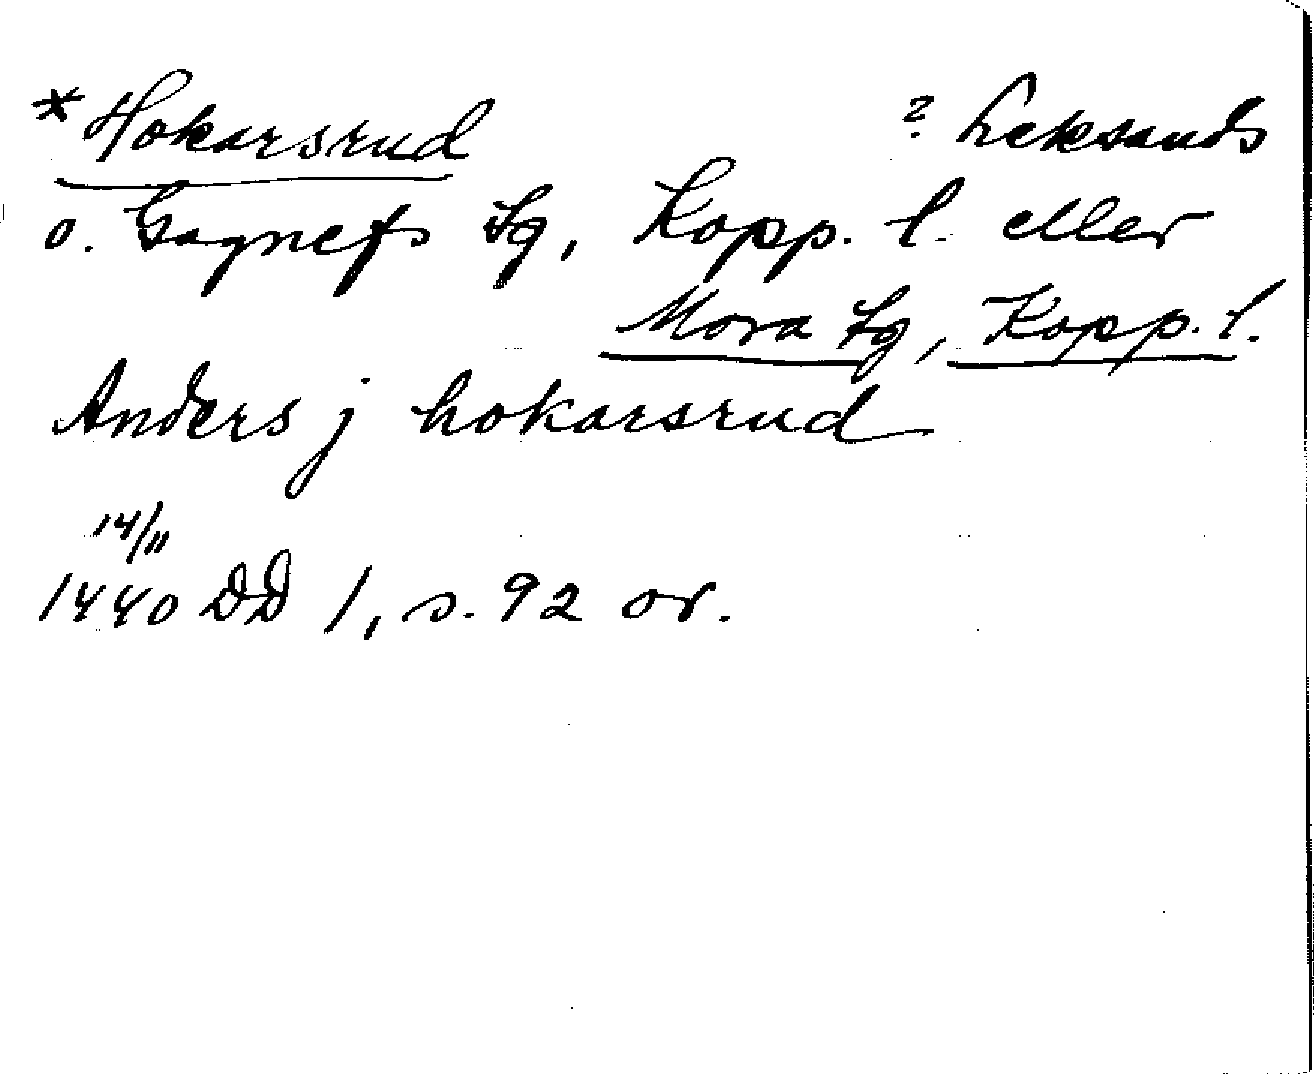 * Hokarsrud ? Leksands
o. Gagnefs tg, Kopp. l. eller
Mora tg, Kopp. l.
Anders j hokarsrud
14/11
1440 DD 1, s. 92 or.